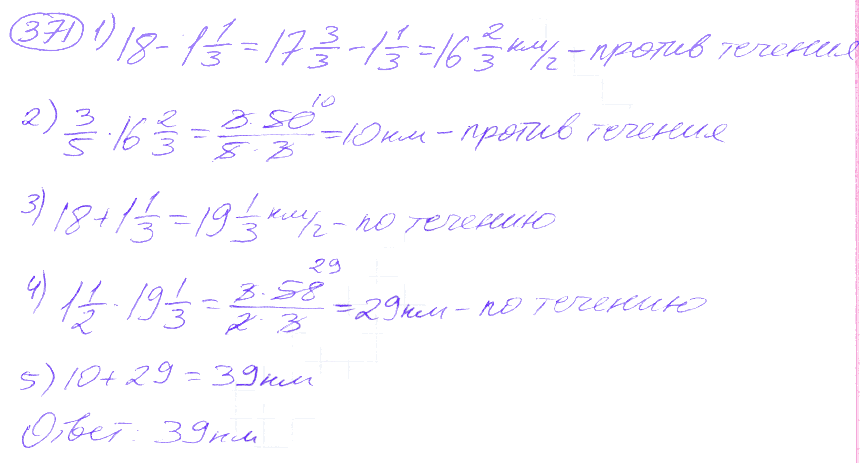 371 1) 18 - 1 1/3 = 17 3/3 - 1 1/3 = 16 2/3 км/г - против течения
2) 3/5 · 16 2/3 = 3·50/5·3 10 = 10 км - против течения
3) 18 + 1 1/3 = 19 1/3 км/г - по течению
4) 1 1/2 · 19 1/3 = 3·58/2·3 29 = 29 км - по течению
5) 10 + 29 = 39 км
Ответ: 39 км